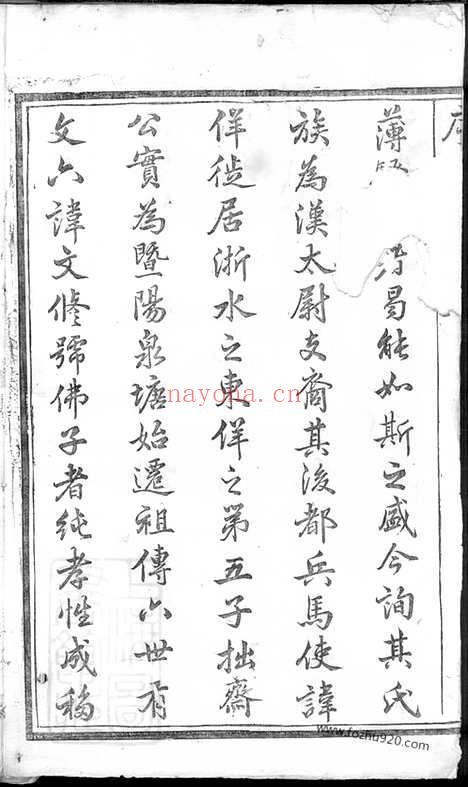 序
薄 曷能如斯之盛今詢其氏
族為漢太尉支裔其後都兵馬使諱
佯徙居浙水之東佯之第五子拙齋
公實為暨陽泉塘始遷祖傳六世有
文六諱文修號佛子者純孝性成移
nayona.cn
www.fozhu920.com